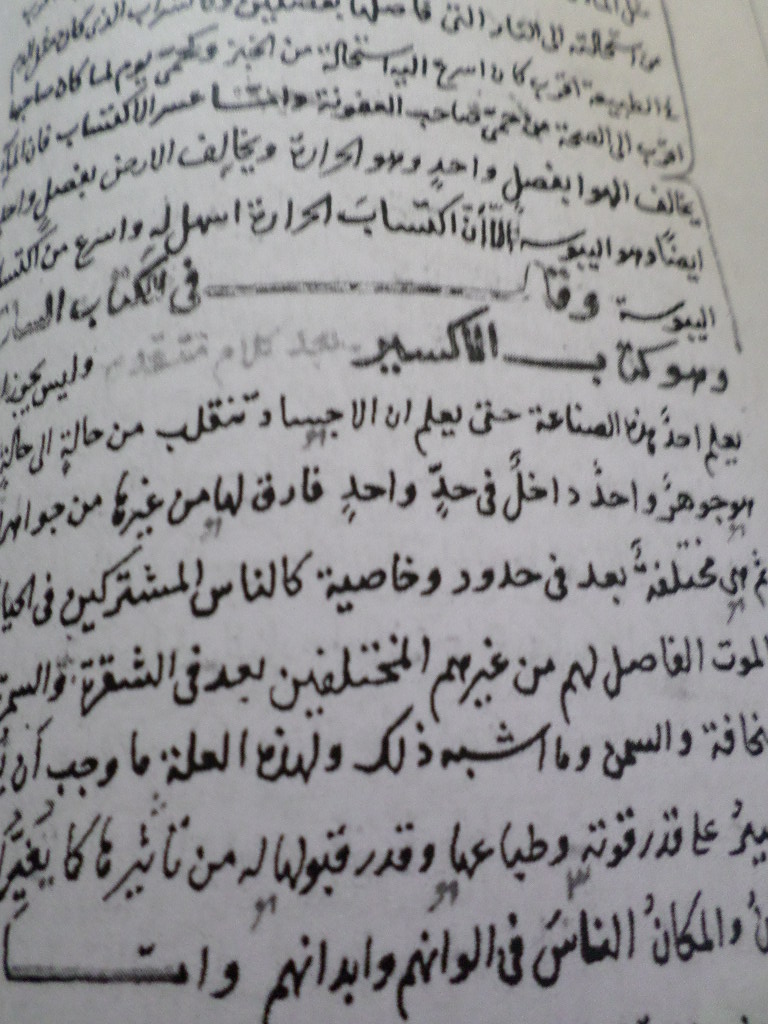 من استحالته الى النار التى فاصلها بفصلين
الطبيعة اقرب كان اسرع اليه استحالة من الخبز وكحمى يوم لما كان صاحبها
اقرب الى الصحة من حمى صاحب العفونة وامّا عسر الاكتساب فان الماء
يخالف الهوا بفصلٍ واحدٍ وهو الحرارة ويخالف الارض بفصلٍ واحدٍ
ايضًا وهو اليبوسة الّا أنّ اكتسابَ الحرارة اسهل له واسرع من اكتساب
اليبوسة وقال فى الكتاب
وهو كتاب الاكسير بعد كلام متقدم وليس يجوز
يعلم احدٌ هذه الصناعة حتى يعلم ان الاجساد تنقلب من حالةٍ الى حالةٍ
هو جوهرٌ واحدٌ داخلٌ فى حدٍّ واحدٍ فارق لها من غيرها من جواهر
ثم هى مختلفةٌ بعد فى حدود وخاصية كالناس المشتركين فى الحياة
الموت الفاصل لهم من غيرهم المختلفين بعد فى الشقرة والسمرة
نحافة والسمن وما اشبه ذلك ولهذه العلة ما وجب أن
على قدر قوته وطباعها وقدر قبولها له من تأثيرها كما يُغيّر
والمكانُ الناسَ فى الوانهم وابدانهم وامّا